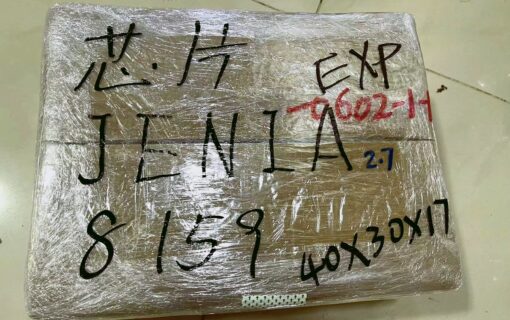 芯片
EXP
0602-1-1
JENIA
2.7
8159
40X30X17